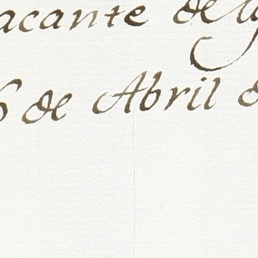 vacante de
6 de Abril d